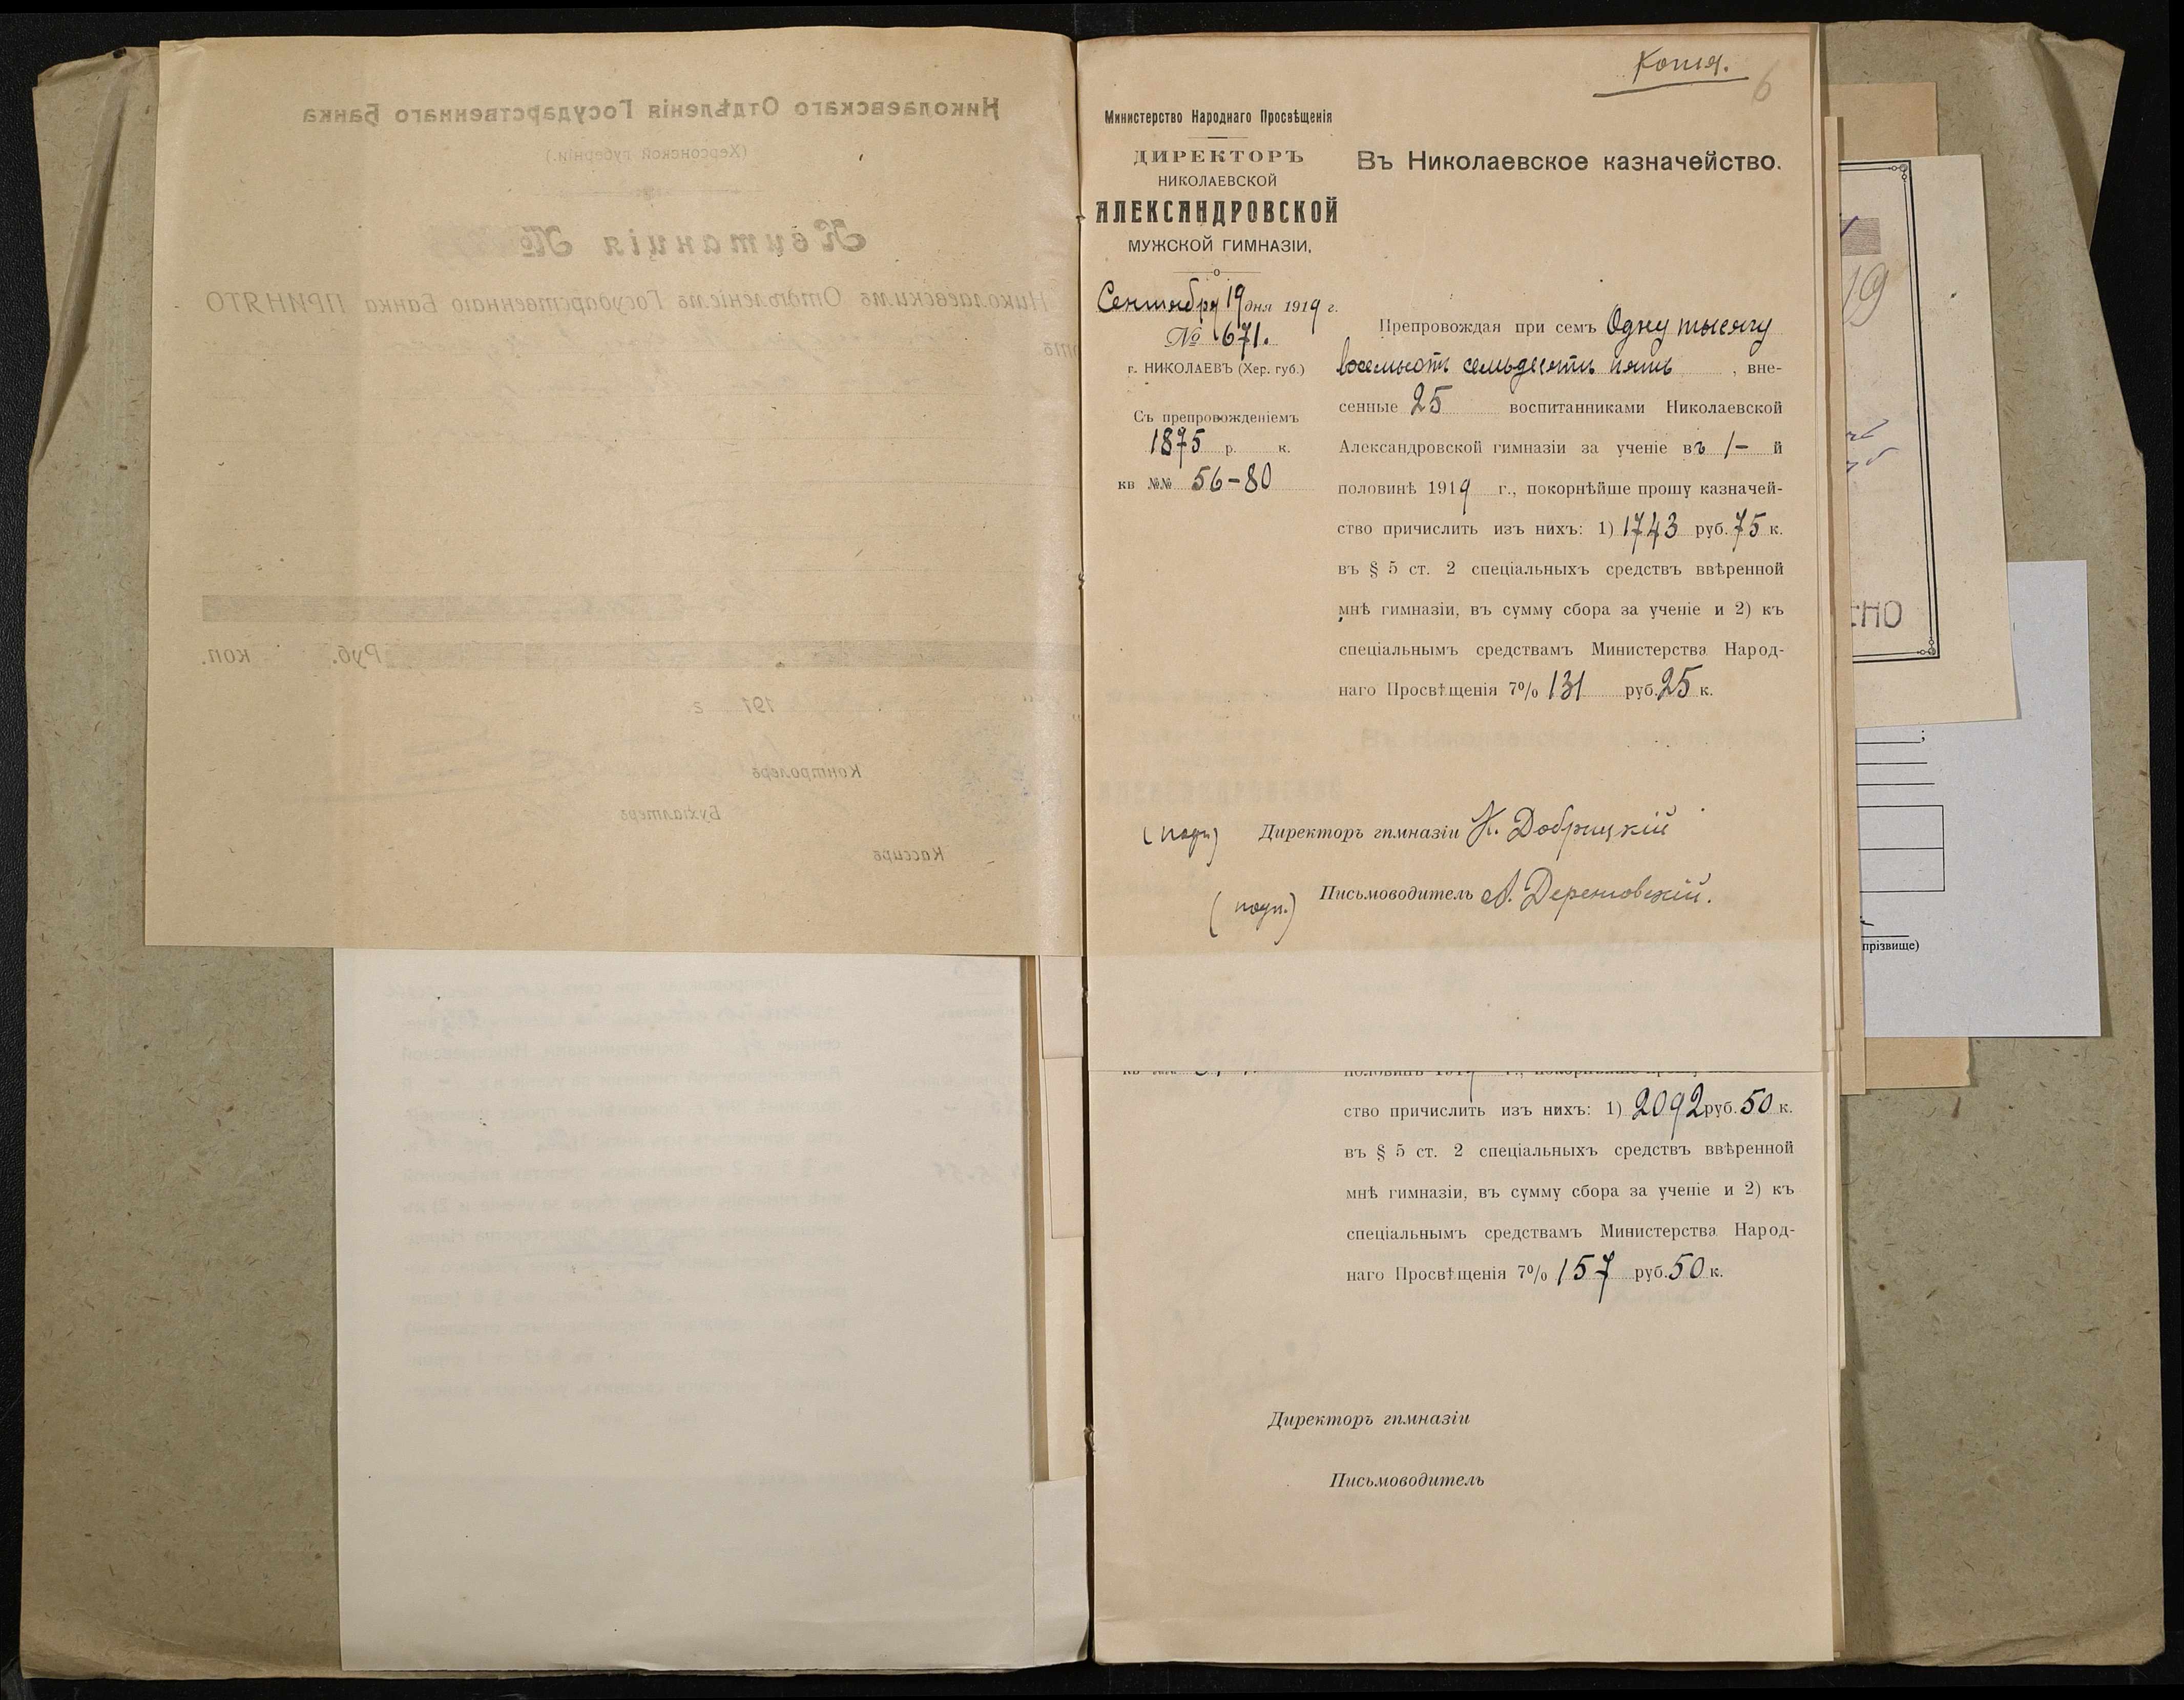 Николаевскаго Отдѣленія Государственнаго Банка
(Херсонской губерніи.)
Квитанція №
Николаевскимъ Отдѣленіемъ Государственнаго Банка ПРИНЯТО
отъ
Руб. коп.
191 г.
Контролеръ
Бухгалтеръ
Кассиръ
Копія.
6
Министерство Народнаго Просвѣщенія
ДИРЕКТОРЪ
НИКОЛАЕВСКОЙ
АЛЕКСАНДРОВСКОЙ
МУЖСКОЙ ГИМНАЗІИ,
Сентября 19 дня 1919 г.
№ 671.
г. НИКОЛАЕВЪ (Хер. губ.)
Съ препровожденіемъ
1875 р. к.
кв №№ 56-80
Въ Николаевское казначейство.
Препровождая при семъ Одну тысячу
восемьсотъ семьдесятъ пять , вне-
сенные 25 воспитанниками Николаевской
Александровской гимназіи за ученіе въ 1- й
половинѣ 1919 г., покорнѣйше прошу казначей-
ство причислить изъ нихъ: 1) 1743 руб. 75 к.
въ § 5 ст. 2 спеціальныхъ средствъ ввѣренной
мнѣ гимназіи, въ сумму сбора за ученіе и 2) къ
спеціальнымъ средствамъ Министерства Народ-
наго Просвѣщенія 7% 131 руб. 25 к.
(подп) Директоръ гимназіи Н. Добрицкій
(подп.) Письмоводитель
ство причислить изъ нихъ: 1) 2092 руб. 50 к.
въ § 5 ст. 2 спеціальныхъ средствъ ввѣренной
мнѣ гимназіи, въ сумму сбора за ученіе и 2) къ
спеціальнымъ средствамъ Министерства Народ-
наго Просвѣщенія 7% 157 руб. 50 к.
Директоръ гимназіи
Письмоводитель
19
ЕНО
прізвище)